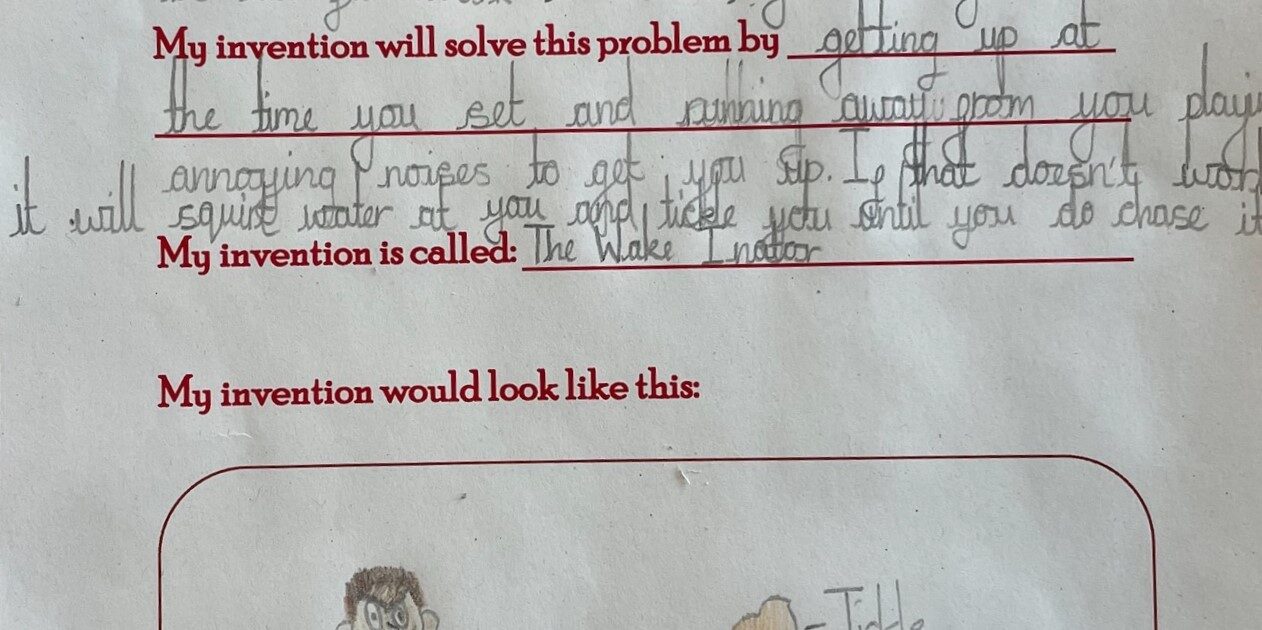 My invention will solve this problem by getting up at
the time you set and running away from you playi
annoying noises to get you up. If that doesn't work
it will squirt water at you and tickle you until you do chase it
My invention is called: The Wake Inator
My invention would look like this:
Tickle